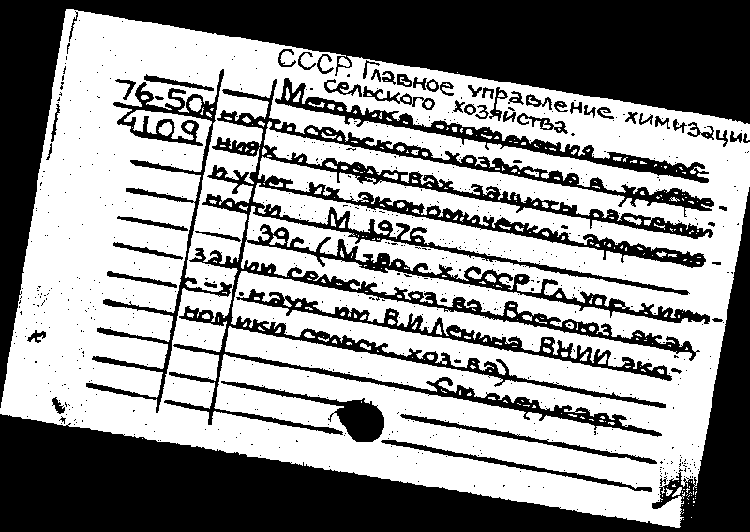 СССР. Главное управление химизации
сельского хозяйства.
76-50к
4109
Методика определения потреб-
ности сельского хозяйства в удобре-
ниях и средствах защиты растений
и учет их экономической эффектив-
ности. М. 1976.
39с. (М-во с.х. СССР. Гл. упр. хими-
зации сельск. хоз-ва. Всесоюз. акад.
с-х. наук им. В.И. Ленина ВНИИ эко-
номики сельск. хоз-ва)
См. след. карт.